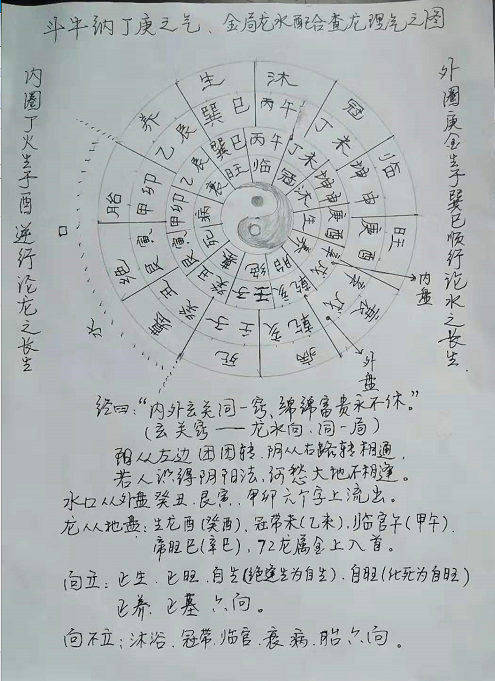 斗牛纳丁庚之气、金局龙水配合查龙理气之图
内圈丁火生于酉逆行论龙之长生
外圈庚金生于巽巳顺行论水之长生
生 沐 冠 临 旺 衰 病 死 墓 绝 胎 养
巽巳 丙午 丁未 坤申 庚酉 辛戌 乾亥 壬子 癸丑 艮寅 甲卯 乙辰
巽巳 丙午 丁未 坤申 庚酉 辛戌 乾亥 壬子 癸丑 艮寅 甲卯 乙辰
旺 临 冠 沐 生 养 胎 绝 墓 死 病 衰
口
水
内盘
外盘
经曰:"内外玄关同一窍、绵绵富贵永不休。"
(玄关窍——龙水向、同一局)
阳从左边团团转、阴从右路转相通
若人识得阴阳法,何愁大地不相逢。
水口从外盘癸丑、艮寅、甲卯六个字上流出。
龙从地盘:生龙酉(癸酉)、冠带未(乙未)、临官午(甲午)、
帝旺巳(辛巳)、72龙属金上入首。
向立:正生、正旺、自生(绝逢生为自生)、自旺(化死为自旺)
正养、正墓、六向。
向不立:沐浴、冠带、临官、衰、病、胎六向。